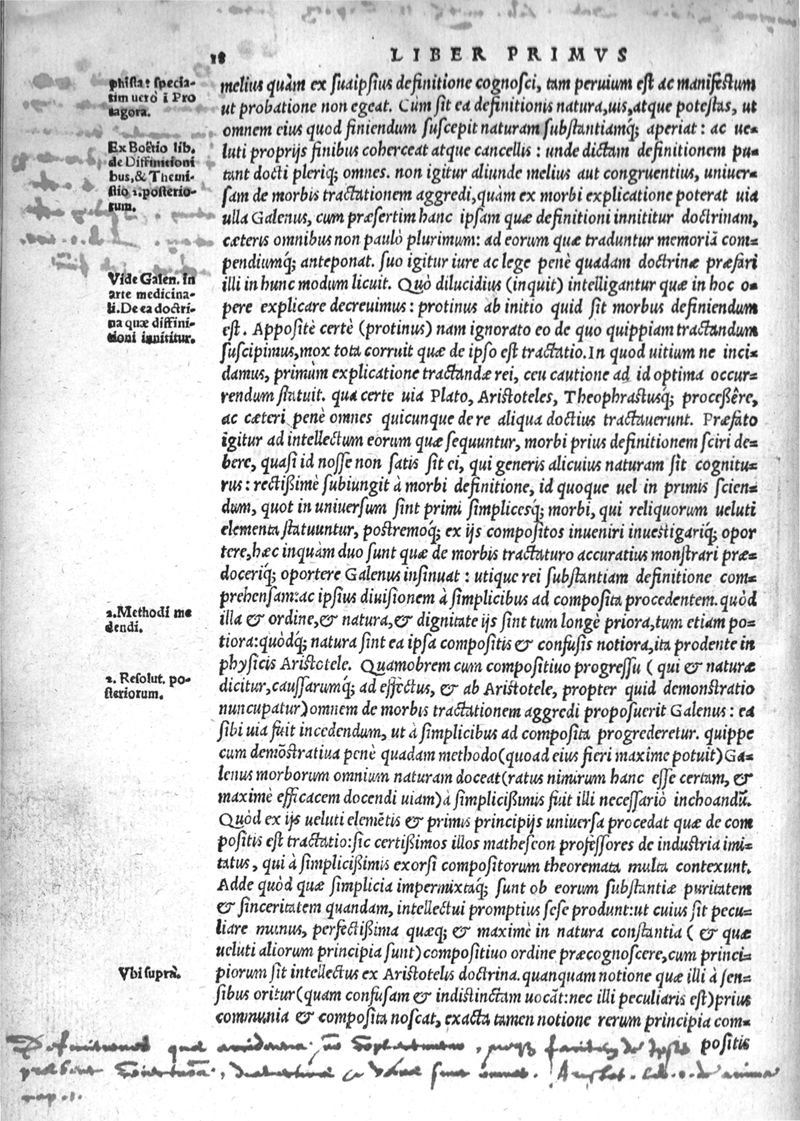 18 LIBER PRIMVS
phista: specia-
tim uero ĩ Pro
tagora.
Ex Boëtio lib.
de Diffinitioni
bus, & Themi-
stio 2. posterio-
rum.
Vide Galen. in
arte medicina-
li. De ea doctri-
na quæ diffini-
tioni innititur.
2. Methodi me
dendi.
2. Resolut. po-
steriorum.
Vbi suprà.
melius quàm ex suaipsius definitione cognosci, tam peruium est ac manifestum
ut probatione non egeat. Cùm sit ea definitionis natura, uis, atque potestas, ut
omnem eius quod finiendum suscepit naturam substantiamq́; aperiat: ac ue-
luti proprijs finibus coherceat atque cancellis: unde dictam definitionem pu-
tant docti pleriq; omnes. non igitur aliunde melius aut congruentius, uniuer-
sam de morbis tractationem aggredi, quàm ex morbi explicatione poterat uia
ulla Galenus, cum præsertim hanc ipsam quæ definitioni innititur doctrinam,
cæteris omnibus non paulò plurimum: ad eorum quæ traduntur memoriã com-
pendiumq́; anteponat. suo igitur iure ac lege penè quadam doctrinæ præfari
illi in hunc modum licuit. Quò dilucidius (inquit) intelligantur quæ in hoc o-
pere explicare decreuimus: protinus ab initio quid sit morbus definiendum
est. Appositè certè (protinus) nam ignorato eo de quo quippiam tractandum
suscipimus, mox tota corruit quæ de ipso est tractatio. In quod uitium ne inci-
damus, primùm explicatione tractandæ rei, ceu cautione ad id optima occur-
rendum statuit. qua certe uia Plato, Aristoteles, Theophrastusq; proceßêre,
ac cæteri penè omnes quicunque de re aliqua doctius tractauerunt. Præfato
igitur ad intellectum eorum quæ sequuntur, morbi prius definitionem sciri de-
bere, quasi id nosse non satis sit ei, qui generis alicuius naturam sit cognitu-
rus: rectißimè subiungit à morbi definitione, id quoque uel in primis scien-
dum, quot in uniuersum sint primi simplicesq́; morbi, qui reliquorum ueluti
elementa statuuntur, postremoq́; ex ijs compositos inueniri inuestigariq́; opor
tere, hæc inquàm duo sunt quæ de morbis tractaturo accuratius monstrari præ-
doceriq́; oportere Galenus insinuat: utique rei substantiam definitione com-
prehensam: ac ipsius diuisionem à simplicibus ad composita procedentem. quòd
illa & ordine, & natura, & dignitate ijs sint tum longè priora, tum etiam po-
tiora: quòdq́; natura sint ea ipsa compositis & confusis notiora, ita prodente in
physicis Aristotele. Quamobrem cum compositiuo progressu (qui & naturæ
dicitur, caussarumq́; ad effectus, & ab Aristotele, propter quid demonstratio
nuncupatur) omnem de morbis tractationem aggredi proposuerit Galenus: ea
sibi uia fuit incedendum, ut à simplicibus ad composita progrederetur. quippe
cum demõstratiua penè quadam methodo (quoad eius fieri maxime potuit) Ga-
lenus morborum omnium naturam doceat (ratus nimirum hanc esse certam, &
maximè efficacem docendi uiam) à simplicißimis fuit illi necessariò inchoandũ.
Quòd ex ijs ueluti elemẽtis & primis principijs uniuersa procedat quæ de com
positis est tractatio: sic certißimos illos matheseon professores de industria imi-
tatus, qui à simplicißimis exorsi compositorum theoremata multa contexunt.
Adde quòd quæ simplicia impermixtaq́; sunt ob eorum substantiæ puritatem
& sinceritatem quandam, intellectui promptius sese produnt: ut cuius sit pecu-
liare munus, perfectißima quæq; & maximè in natura constantia (& quæ
ueluti aliorum principia sunt) compositiuo ordine præcognoscere, cum princi-
piorum sit intellectus ex Aristotelis doctrina. quanquam notione quæ illi à sen-
sibus oritur (quam confusam & indistinctam uocãt: nec illi peculiaris est) prius
communia & composita noscat, exacta tamen notione rerum principia com-
positis
Definitiones
sunt omnes. Aristot. lib. de anima
cap. 1.